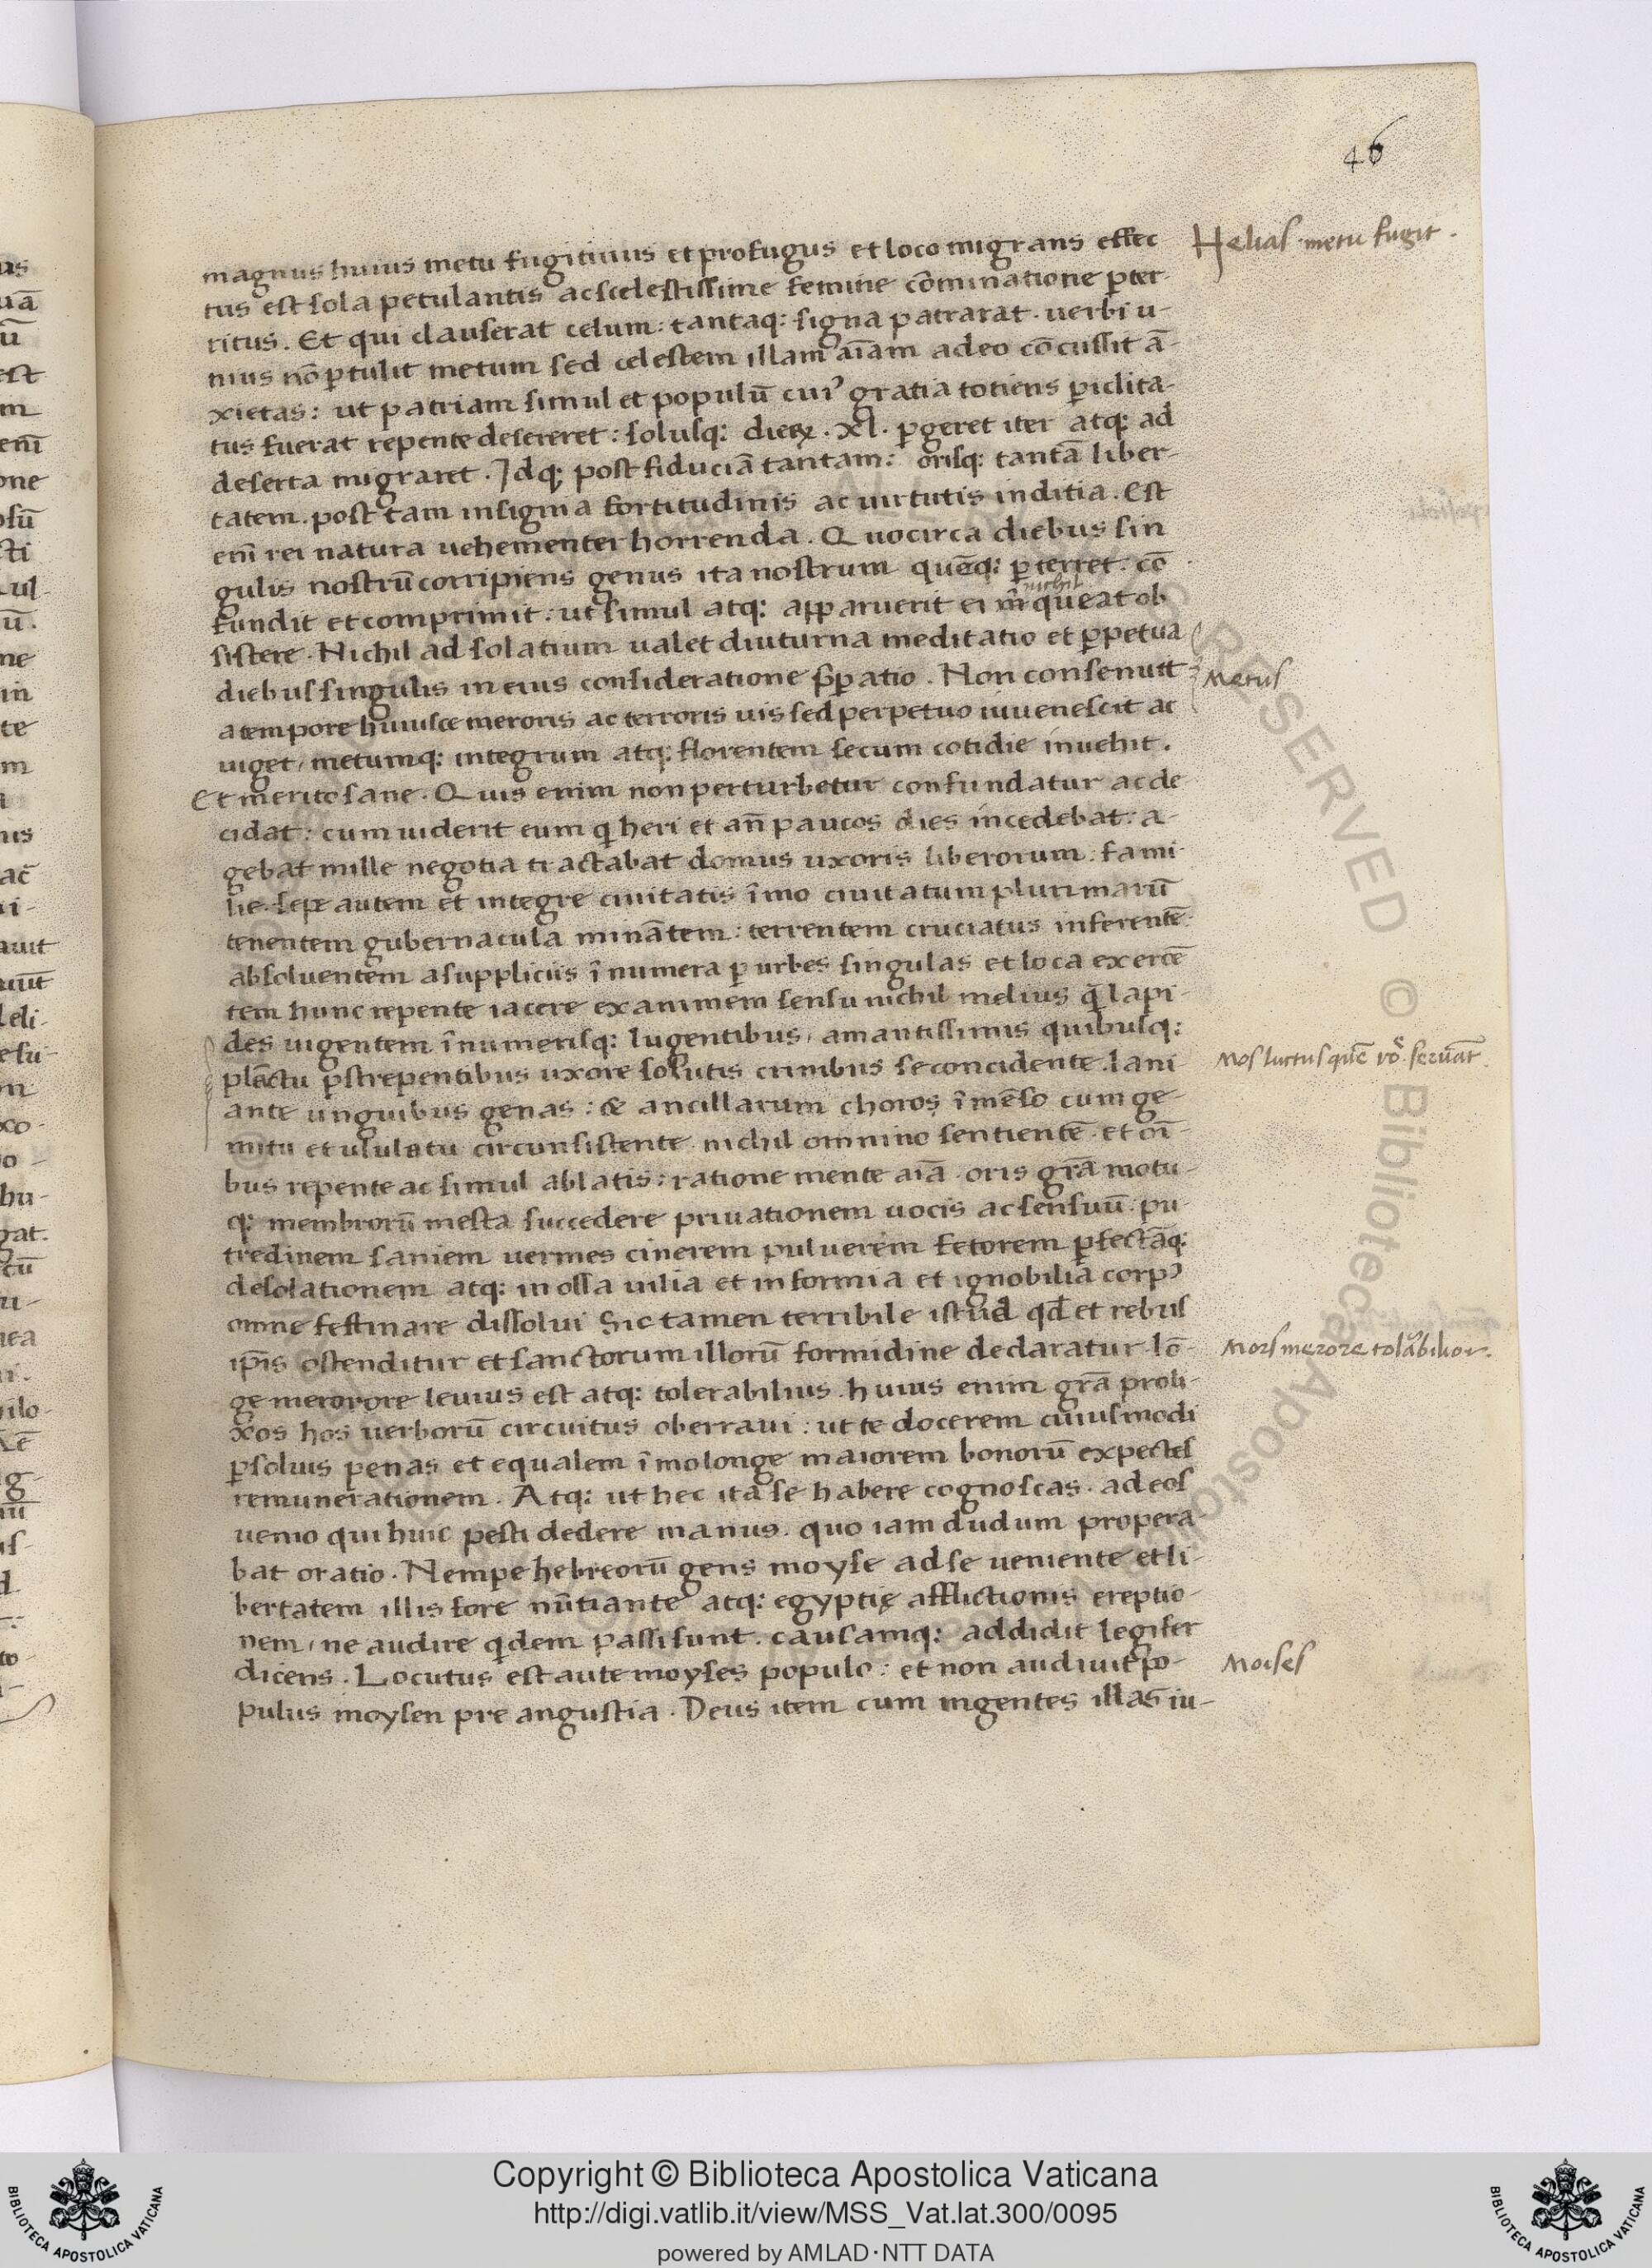 46
magnus huius metu fugitiuus et profugus et loco migrans effec
Helias metu fugit.
tus est sola petulantis ac scelestissime femine cōminatione p̄ter-
ritus. Et qui clauserat celum: tantaq: signa patrarat. uerbi u-
nius nō ꝑtulit metum sed celestem illam aīam adeo cōcussit ā-
xietas: ut patriam simul et populū cuiꝰ gratia totiens ꝑiclita-
tus fuerat repente desereret: solusq: dieꝝ. xl. ꝑgeret iter atq: ad
deserta migraret. Idq: post fiduciā tantam: orisq: tantā liber-
tatem. post tam insignia fortitudinis ac uirtutis inditia. Est
enī rei natura uehementer horrenda. Quocirca diebus sin
gulis nostrū corripiens genus ita nostrum quēq: ꝑterret. cō
nichil
fundit et comprimit: ut simul atq: apparuerit ei queat ob
sistere. Nichil ad solatium ualet diuturna meditatio et ꝑpetua
diebus singulis in eius consideratione p̄ꝑatio. Non consenuit
Metus
a tempore huiusce meroris ac terroris uis sed perpetuo iuuenescit ac
uiget, metumq: integrum atq: florentem secum cotidie inuehit.
Et merito sane. Quis enim non perturbetur confundatur ac de
cidat: cum uiderit eum q̄ heri et añ paucos dies incedebat: a-
gebat mille negotia tractabat domus uxoris liberorum: fami
lie. sepe autem et integre ciuitatis īmo ciuitatum plurimarū
tenentem gubernacula minātem: terrentem cruciatus inferentē
absoluentem a suppliciis īnumera ꝑ urbes singulas et loca exercē
tem hunc repente iacere exanimem sensu nichil melius q̄ lapi-
des uigentem īnumerisq: lugentibus, amantissimis quibusq:
plāctu ꝑstrepentibus uxore solutis crinibus se concidente. lani-
Mos luctus quē servāt
ante unguibus genas: & ancillarum choros īmēso cum ge-
mitu et ululatu circunsistente nichil omnino sentientē. et oī-
bus repente ac simul ablatis: ratione mente aīa. oris grā motu-
q: membrorū mesta succedere priuationem uocis ac sensuū: pu-
tredinem saniem uermes cinerem puluerem fetorem ꝑfectāq:
desolationem atq: in ossa uilia et informia et ignobilia corpꝰ
omne festinare dissolui Sic tamen terribile istud qd et rebus
ip̄is ostenditur et sanctorum illorū formidine declaratur. lō-
Mors merore tolābilior.
ge merorore leuius est atq: tolerabilius. huius enim grā proli-
xos hos uerborū circuitus oberraui: ut te docerem cuiusmodi
ꝑsoluis penas et equalem īmo longe maiorem bonorū expectes
remunerationem. Atq: ut hec ita se habere cognoscas. ad eos
uenio qui huic pesti dedere manus. quo iam dudum propera-
bat oratio. Nempe hebreorū gens moyse ad se ueniente et li-
bertatem illis fore nūtiante atq: egyptię afflictionis ereptio-
nem, ne audire q̄dem passi sunt. causamq: addidit legifer
dicens. Locutus est aute moyses populo: et non audiuit po-
Moises
pulus moysen pre angustia. Deus item cum ingentes illas iu-
Copyright © Biblioteca Apostolica Vaticana
http://digi.vatlib.it/view/MSS_Vat.lat.300/0095
powered by AMLAD·NTT DATA
BIBLIOTECA APOSTOLICA VATICANA
BIBLIOTECA APOSTOLICA VATICANA